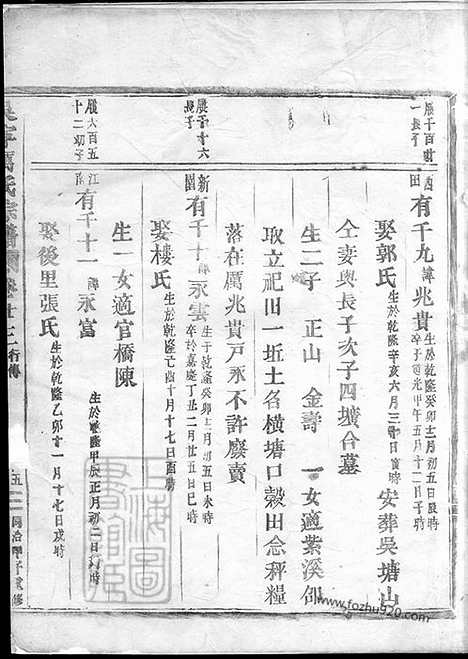 西田 有千九 諱兆貴 生於乾隆癸卯十二月初五日辰時 卒于道光甲午五月十二日于時
娶郭氏 生於乾隆辛亥六月三十日寅時 安葬吳塘山
仝妻與長子次子四壙合墓
生二子 正山 金壽 一女適紫溪邵
取立祀田一坵土名横塘口穀田念秤糧
落在厲兆貴戸永不許廢賣
新園 有千十 諱永雲 生于乾隆癸卯十二月初五日未時 卒於嘉慶丁丑二月廿五日巳時
娶樓氏 生於乾隆己酉十月十七日酉時
生一女適官橋陳
江南 有千十一 諱永富 生於乾隆甲辰正月初二日時
娶後里張氏 生於乾隆乙卯十一月十七日戌時
厲氏宗譜 卷廿二 行傳
五 同治甲子重修
www.fozhu920.com